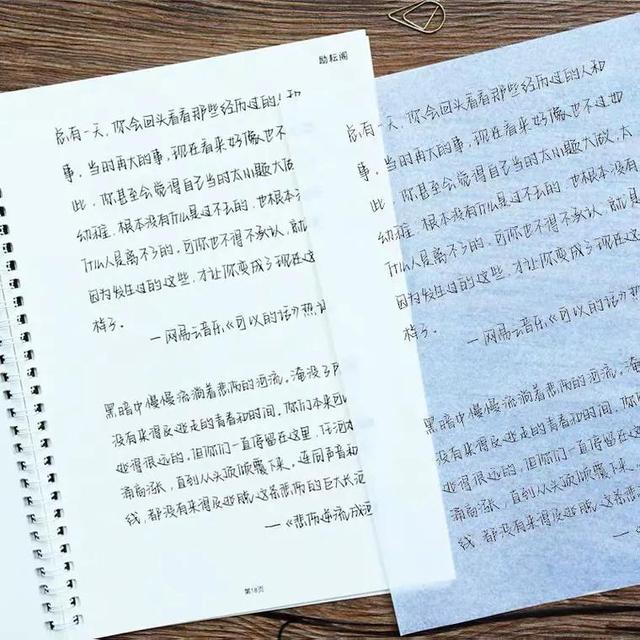 励耘阁
总有一天，你会回头看看那些经历过的人和
事，当时再大的事，现在看来好像也不
此，你甚至会觉得自己当时太小题大做
幼稚，根本没有什么是过不去的，也根本没
什么人是离不了的，可你也不得不承认，就
因为发生过的这些，才让你变成了现在这
样子。
—网易云音乐《可以的话》热评
黑暗中慢慢流淌着悲伤的河流。淹没了
没有来得及逃走的青春和时间。你们本来可
逃得很远的。但你们一直停留在这里，任河
涌高涨，直到从头顶倾覆下来。连同声音和
线，都没有来得及逃脱这条悲伤的巨大长河
—《悲伤逆流成河
第18页
总有一天，你会回头看看那些经历过的人和
事，当时再大的事，现在看来好像也不过如
此，你甚至会觉得自己当时太小题大做，太
幼稚，根本没有什么是过不去的，也根本没有
什么人是离不了的，可你也不得不承认，就是
因为发生过的这些，才让你变成了现在这
样子。
—网易云音乐《可以的话》热
黑暗中慢慢流淌着悲伤的河流。淹
没有来得及逃走的青春和时间。你们
逃得很远的。但你们一直停留在这里
涌高涨，直到从头顶倾覆下来。连
线，都没有来得及逃脱这条悲伤
—《